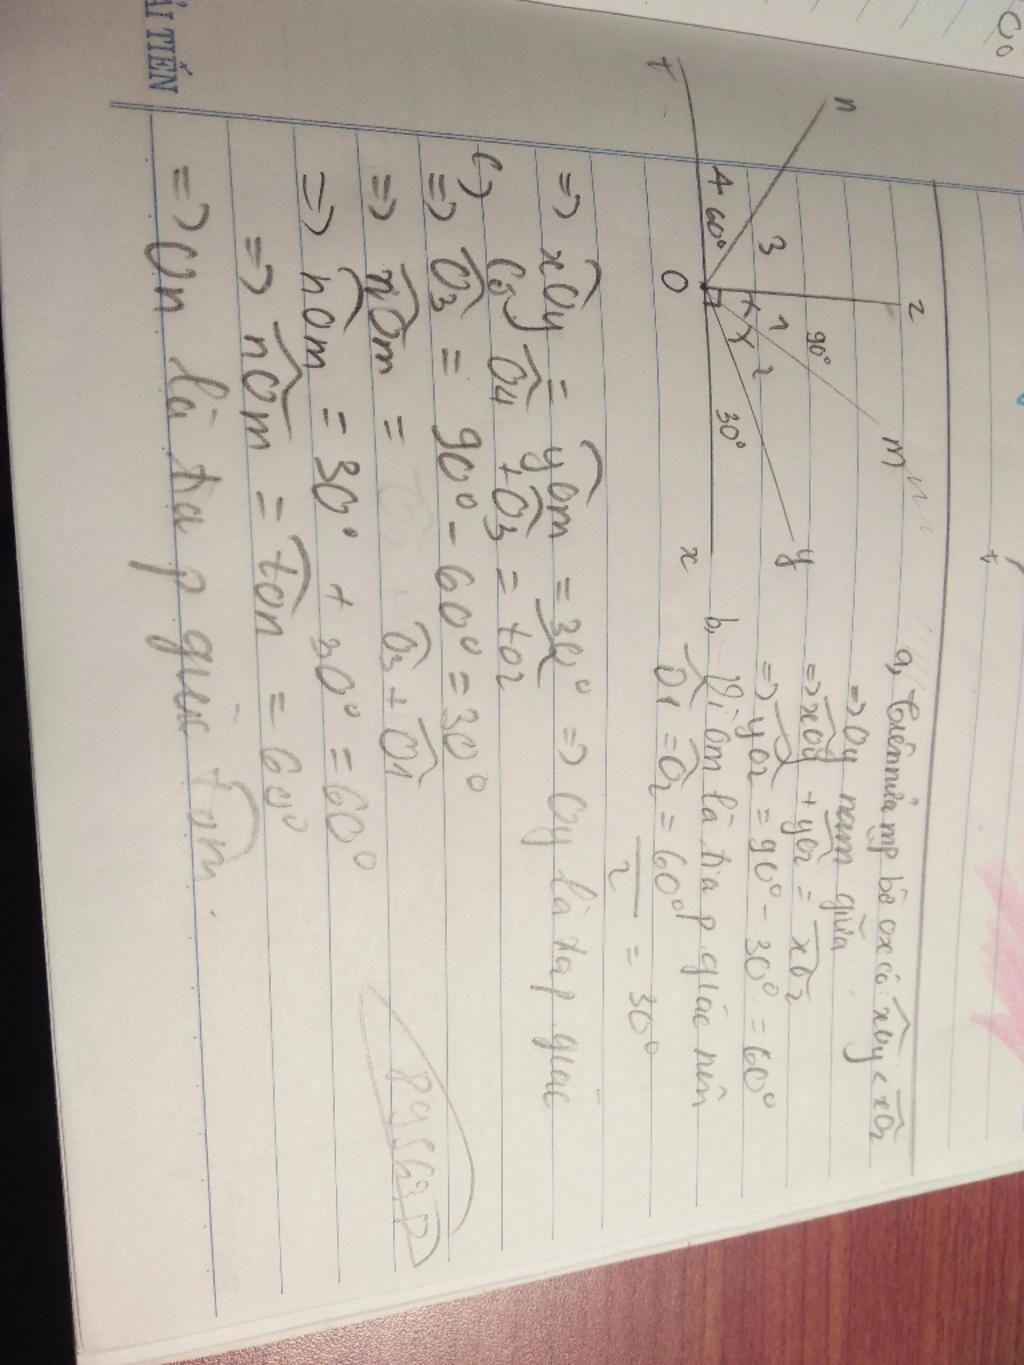 ẢI TIẾN
t
n
z
m
y
x
O
4 60° 3
1 2
90°
30°
a, Trên nửa mp bờ ox có: xOy < xOz
=> Oy nằm giữa
=> xOy + yOz = xOz
=> yOz = 90° - 30° = 60°
b, Vì Om là tia p giác nên
O1 = O2 = 60° / 2 = 30°
=> xOy = yOm = 30° => Oy là tia p giác
c, Có O4 + O3 = tOz
=> O3 = 90° - 60° = 30°
=> nOm = O3 + O1
=> nOm = 30° + 30° = 60°
=> nOm = tOn = 60°
=> On là tia p giác tOm.